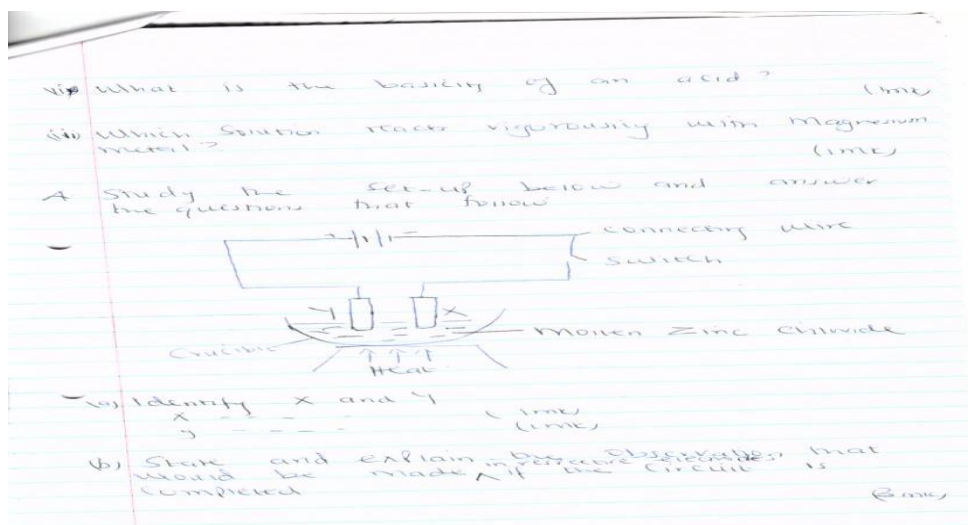 vii) What is the basicity of an acid? (1mk)
iii) Which solution reacts vigorously with magnesium
metal? (1mk)
4 Study the set-up below and answer
the questions that follow
+ -
connecting wire
switch
Y X
molten zinc chloride
Crucible
Heat
(a) Identify X and Y
X - - - - - (1mk)
Y - - - - - (1mk)
(b) State and explain the observation that
would be made in respective electrodes if the circuit is
completed (3mks)